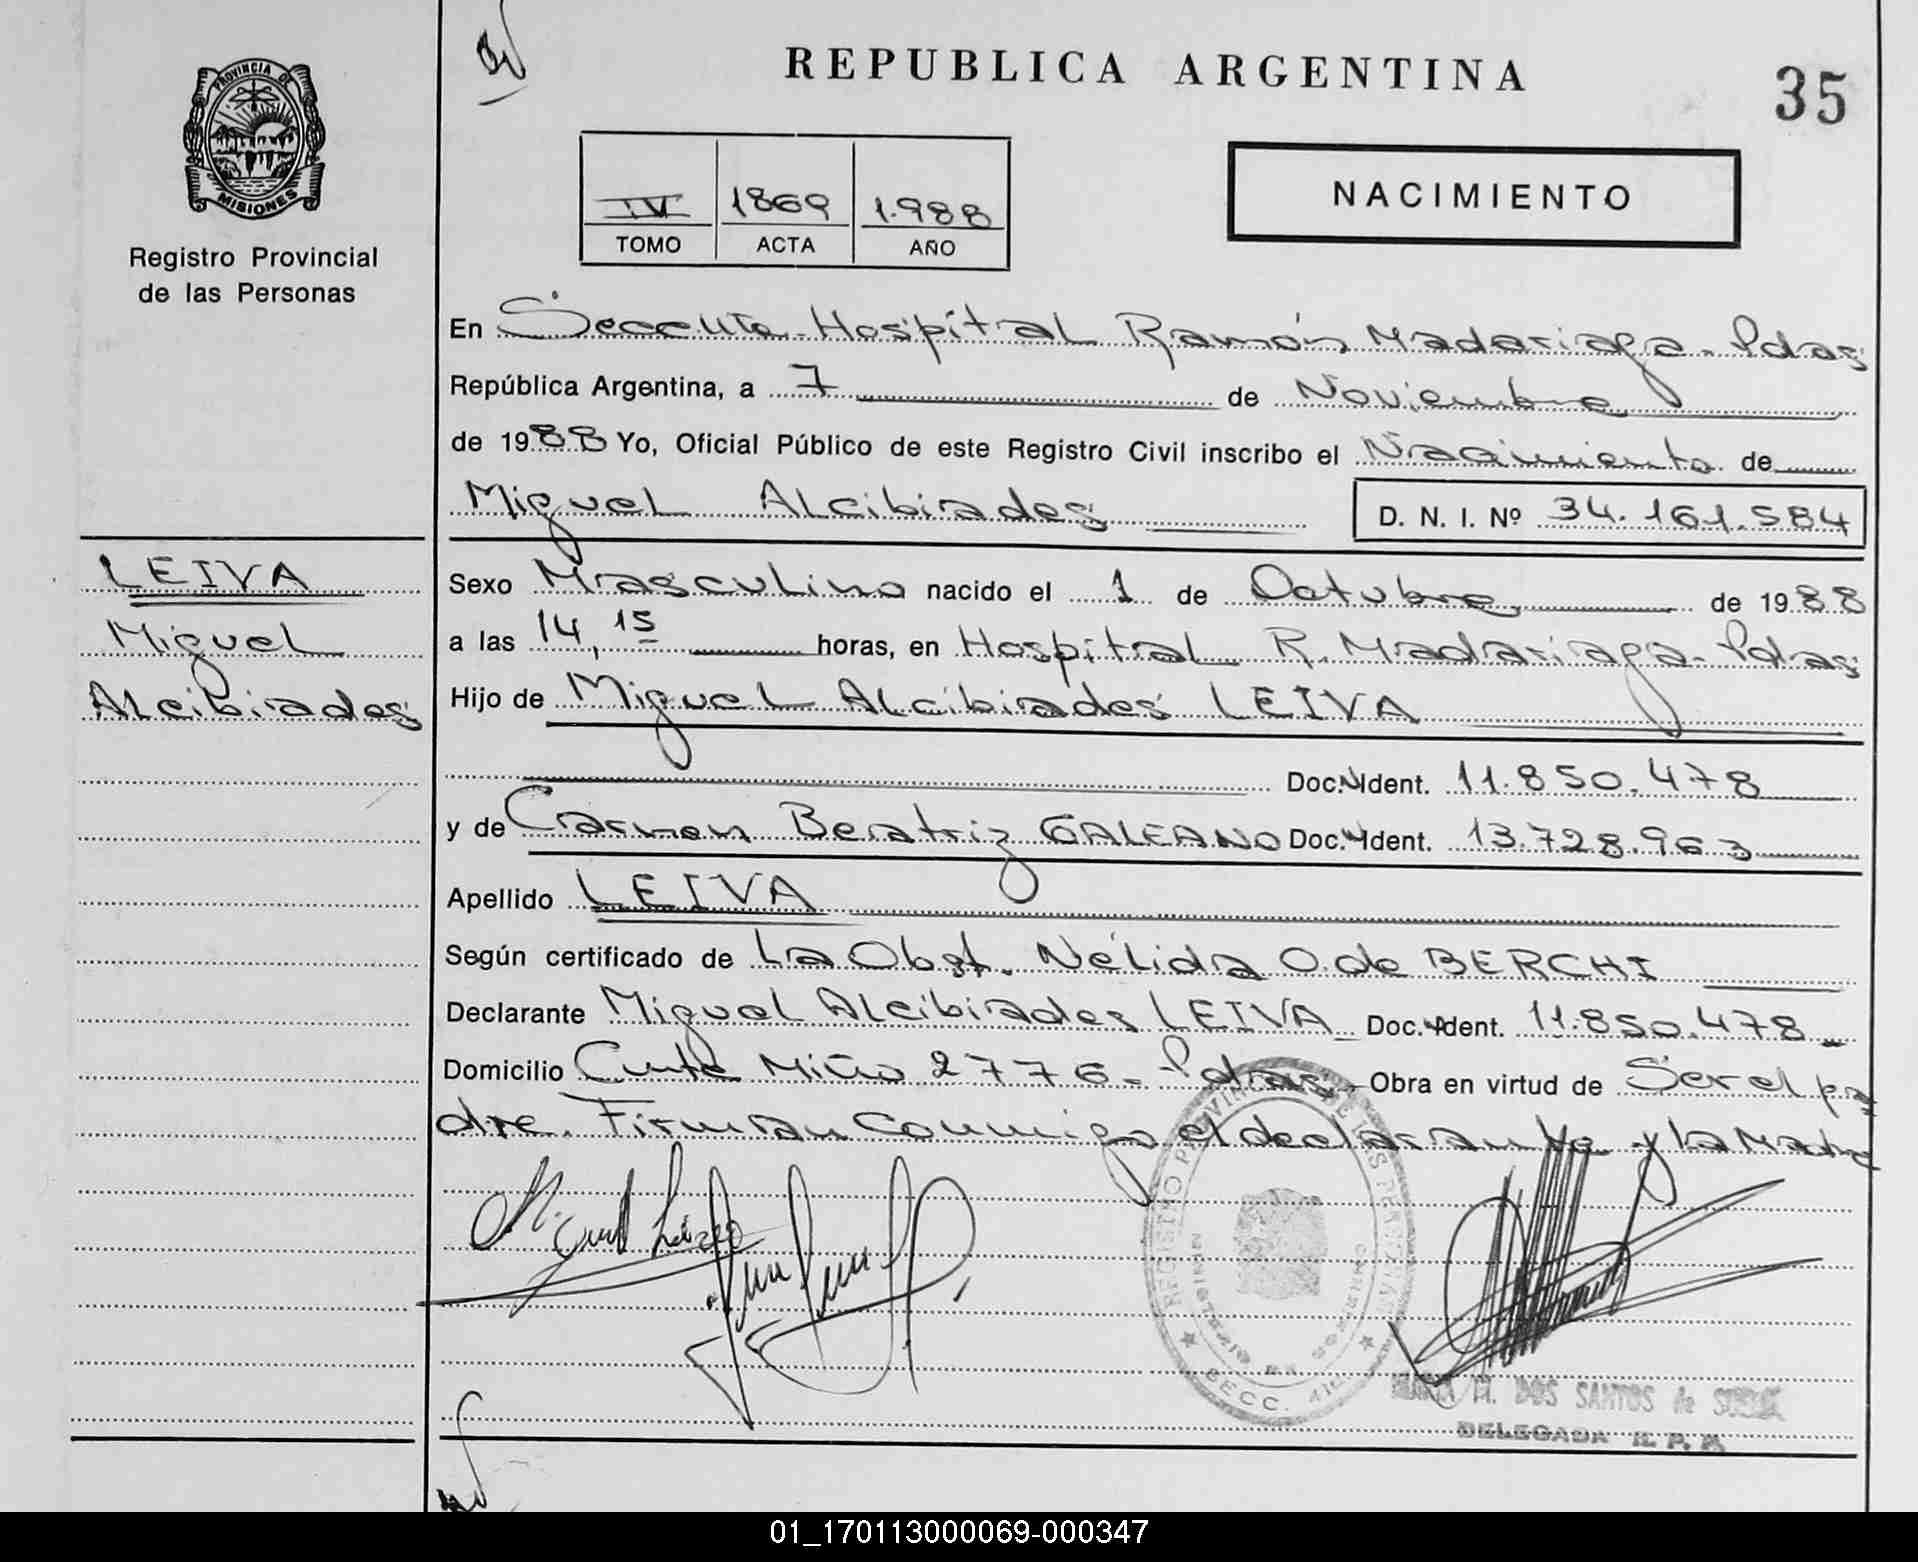 REPUBLICA ARGENTINA
35
PROVINCIA DE
MISIONES
Registro Provincial
de las Personas
IV 1869 1.988
TOMO ACTA AÑO
NACIMIENTO
En Hospital Ramón Madariaga - Pdas
República Argentina, a 7 de Noviembre
de 1988 Yo, Oficial Público de este Registro Civil inscribo el Nacimiento de
Miguel Alcibiades D. N. I. Nº 34.161.584
LEIVA
Miguel
Alcibiades
Sexo Masculino nacido el 1 de Octubre de 1988
a las 14,15 horas, en Hospital R. Madariaga - Pdas
Hijo de Miguel Alcibiades LEIVA
Doc. Ident. 11.850.478
y de Carmen Beatriz GALEANO Doc. Ident. 13.728.963
Apellido LEIVA
Según certificado de La Obst. Nélida O. de BERCHI
Declarante Miguel Alcibiades LEIVA Doc. Ident. 11.850.478
Domicilio Miño 2776 - Pdas, Obra en virtud de Ser el pa
dre. Firman Conmigo el declarante y la Madre
REGISTRO PROVINCIAL DE LAS PERSONAS
SECC.
M. DOS SANTOS de
DELEGADA R. P. P.
01_170113000069-000347